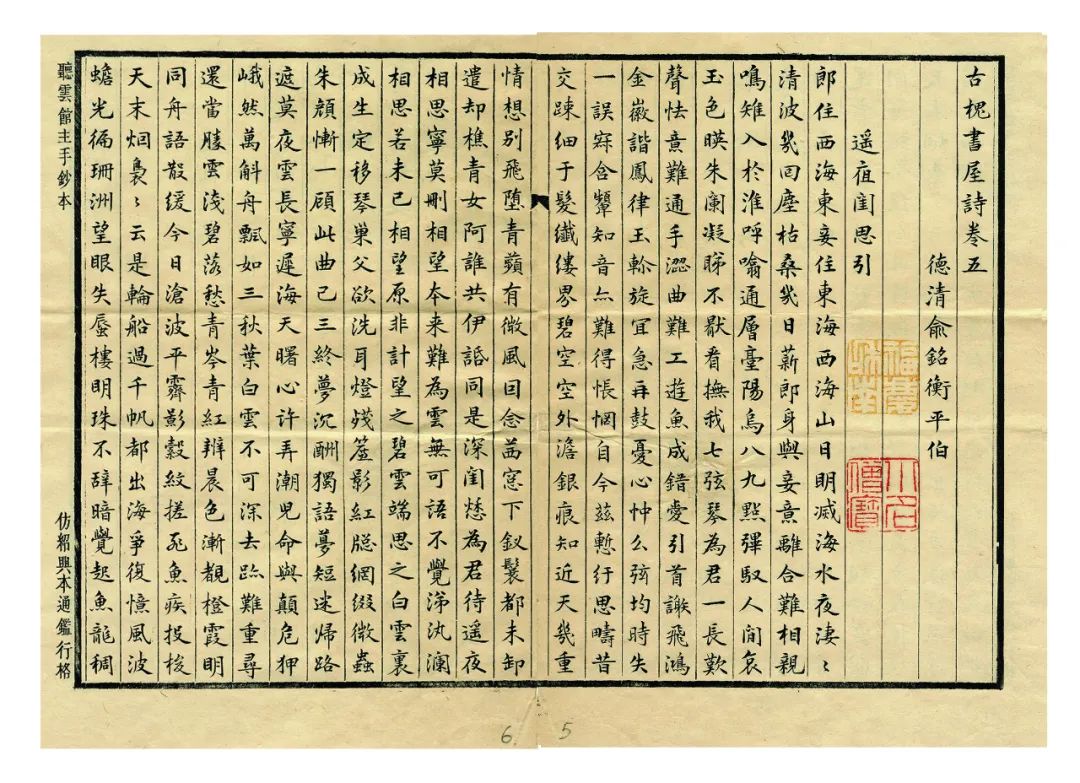 古槐書屋詩卷五
德清俞銘衡平伯
遥夜閨思引
郎住西海東妾住東海西海山日明滅海水夜淒〻
清波幾回塵枯桑幾日薪郎身與妾意離合難相親
鳴雉入於淮呼噏通層臺陽烏八九點彈馭人間哀
玉色暎朱闌凝睇不猒看撫我七弦琴為君一長歎
聲怯意難通手澀曲難工遊魚成錯愛引首謝飛鴻
金徽諧鳳律玉軫旋宜急再鼓憂心忡么弦均時失
一誤寀含顰知音亦難得悵惘自今茲慙紆思疇昔
交踈細于髮纖縷界碧空空外澹銀痕知近天幾重
情想別飛墮青蘋有微風回念茜窓下釵鬟都未卸
遣却樵青女阿誰共伊話同是深閨愁為君待遥夜
相思寧莫刪相望本來難為雲無可語不覺涕汍瀾
相思若未已相望原非計望之碧雲端思之白雲裏
成生定移琴巢父欲洗耳燈殘簾影紅牕網綴微蟲
朱顏慚一顧此曲已三終夢沉酬獨語夢短迷歸路
遮莫夜雲長寧遲海天曙心許弄潮兒命與顛危狎
峨然萬斛舟飄如三秋葉白雲不可深去跡難重尋
還當勝雲淺碧落愁青岑青紅辨晨色漸覩橙霞明
同舟語散緩今日滄波平霽影縠紋搓飛魚疾投梭
天末烟裊〻云是輪船過千帆都出海爭復憶風波
蟾光徧珊洲望眼失蜃樓明珠不辭暗覺起魚龍稠
聽雲館主手鈔本
仿紹興本通鑑行格
6 5